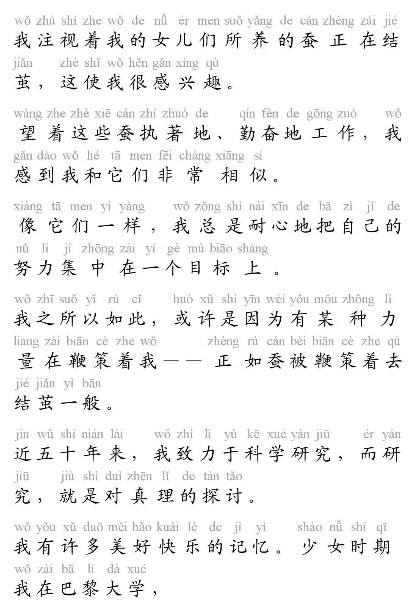 wǒ zhù shì zhe wǒ de nǚ ér men suǒ yǎng de cán zhèng zài jié
我注视着我的女儿们所养的蚕正在结
jiǎn zhè shǐ wǒ hěn gǎn xìng qù
茧，这使我很感兴趣。
wàng zhe zhè xiē cán zhí zhuó de qín fèn de gōng zuò wǒ
望着这些蚕执著地、勤奋地工作，我
gǎn dào wǒ hé tā men fēi cháng xiāng sì
感到我和它们非常相似。
xiàng tā men yí yàng wǒ zǒng shì nài xīn de bǎ zì jǐ de
像它们一样，我总是耐心地把自己的
nǔ lì jí zhōng zài yí gè mù biāo shàng
努力集中在一个目标上。
wǒ zhī suǒ yǐ rú cǐ huò xǔ shì yīn wèi yǒu mǒu zhǒng lì
我之所以如此，或许是因为有某种力
liang zài biān cè zhe wǒ zhèng rú cán bèi biān cè zhe qù
量在鞭策着我——正如蚕被鞭策着去
jié jiǎn yì bān
结茧一般。
jìn wǔ shí nián lái wǒ zhì lì yú kē xué yán jiū ér yán
近五十年来，我致力于科学研究，而研
jiū jiù shì duì zhēn lǐ de tàn tǎo
究，就是对真理的探讨。
wǒ yǒu xǔ duō měi hǎo kuài lè de jì yì shào nǚ shí qī
我有许多美好快乐的记忆。少女时期
wǒ zài bā lí dà xué
我在巴黎大学，